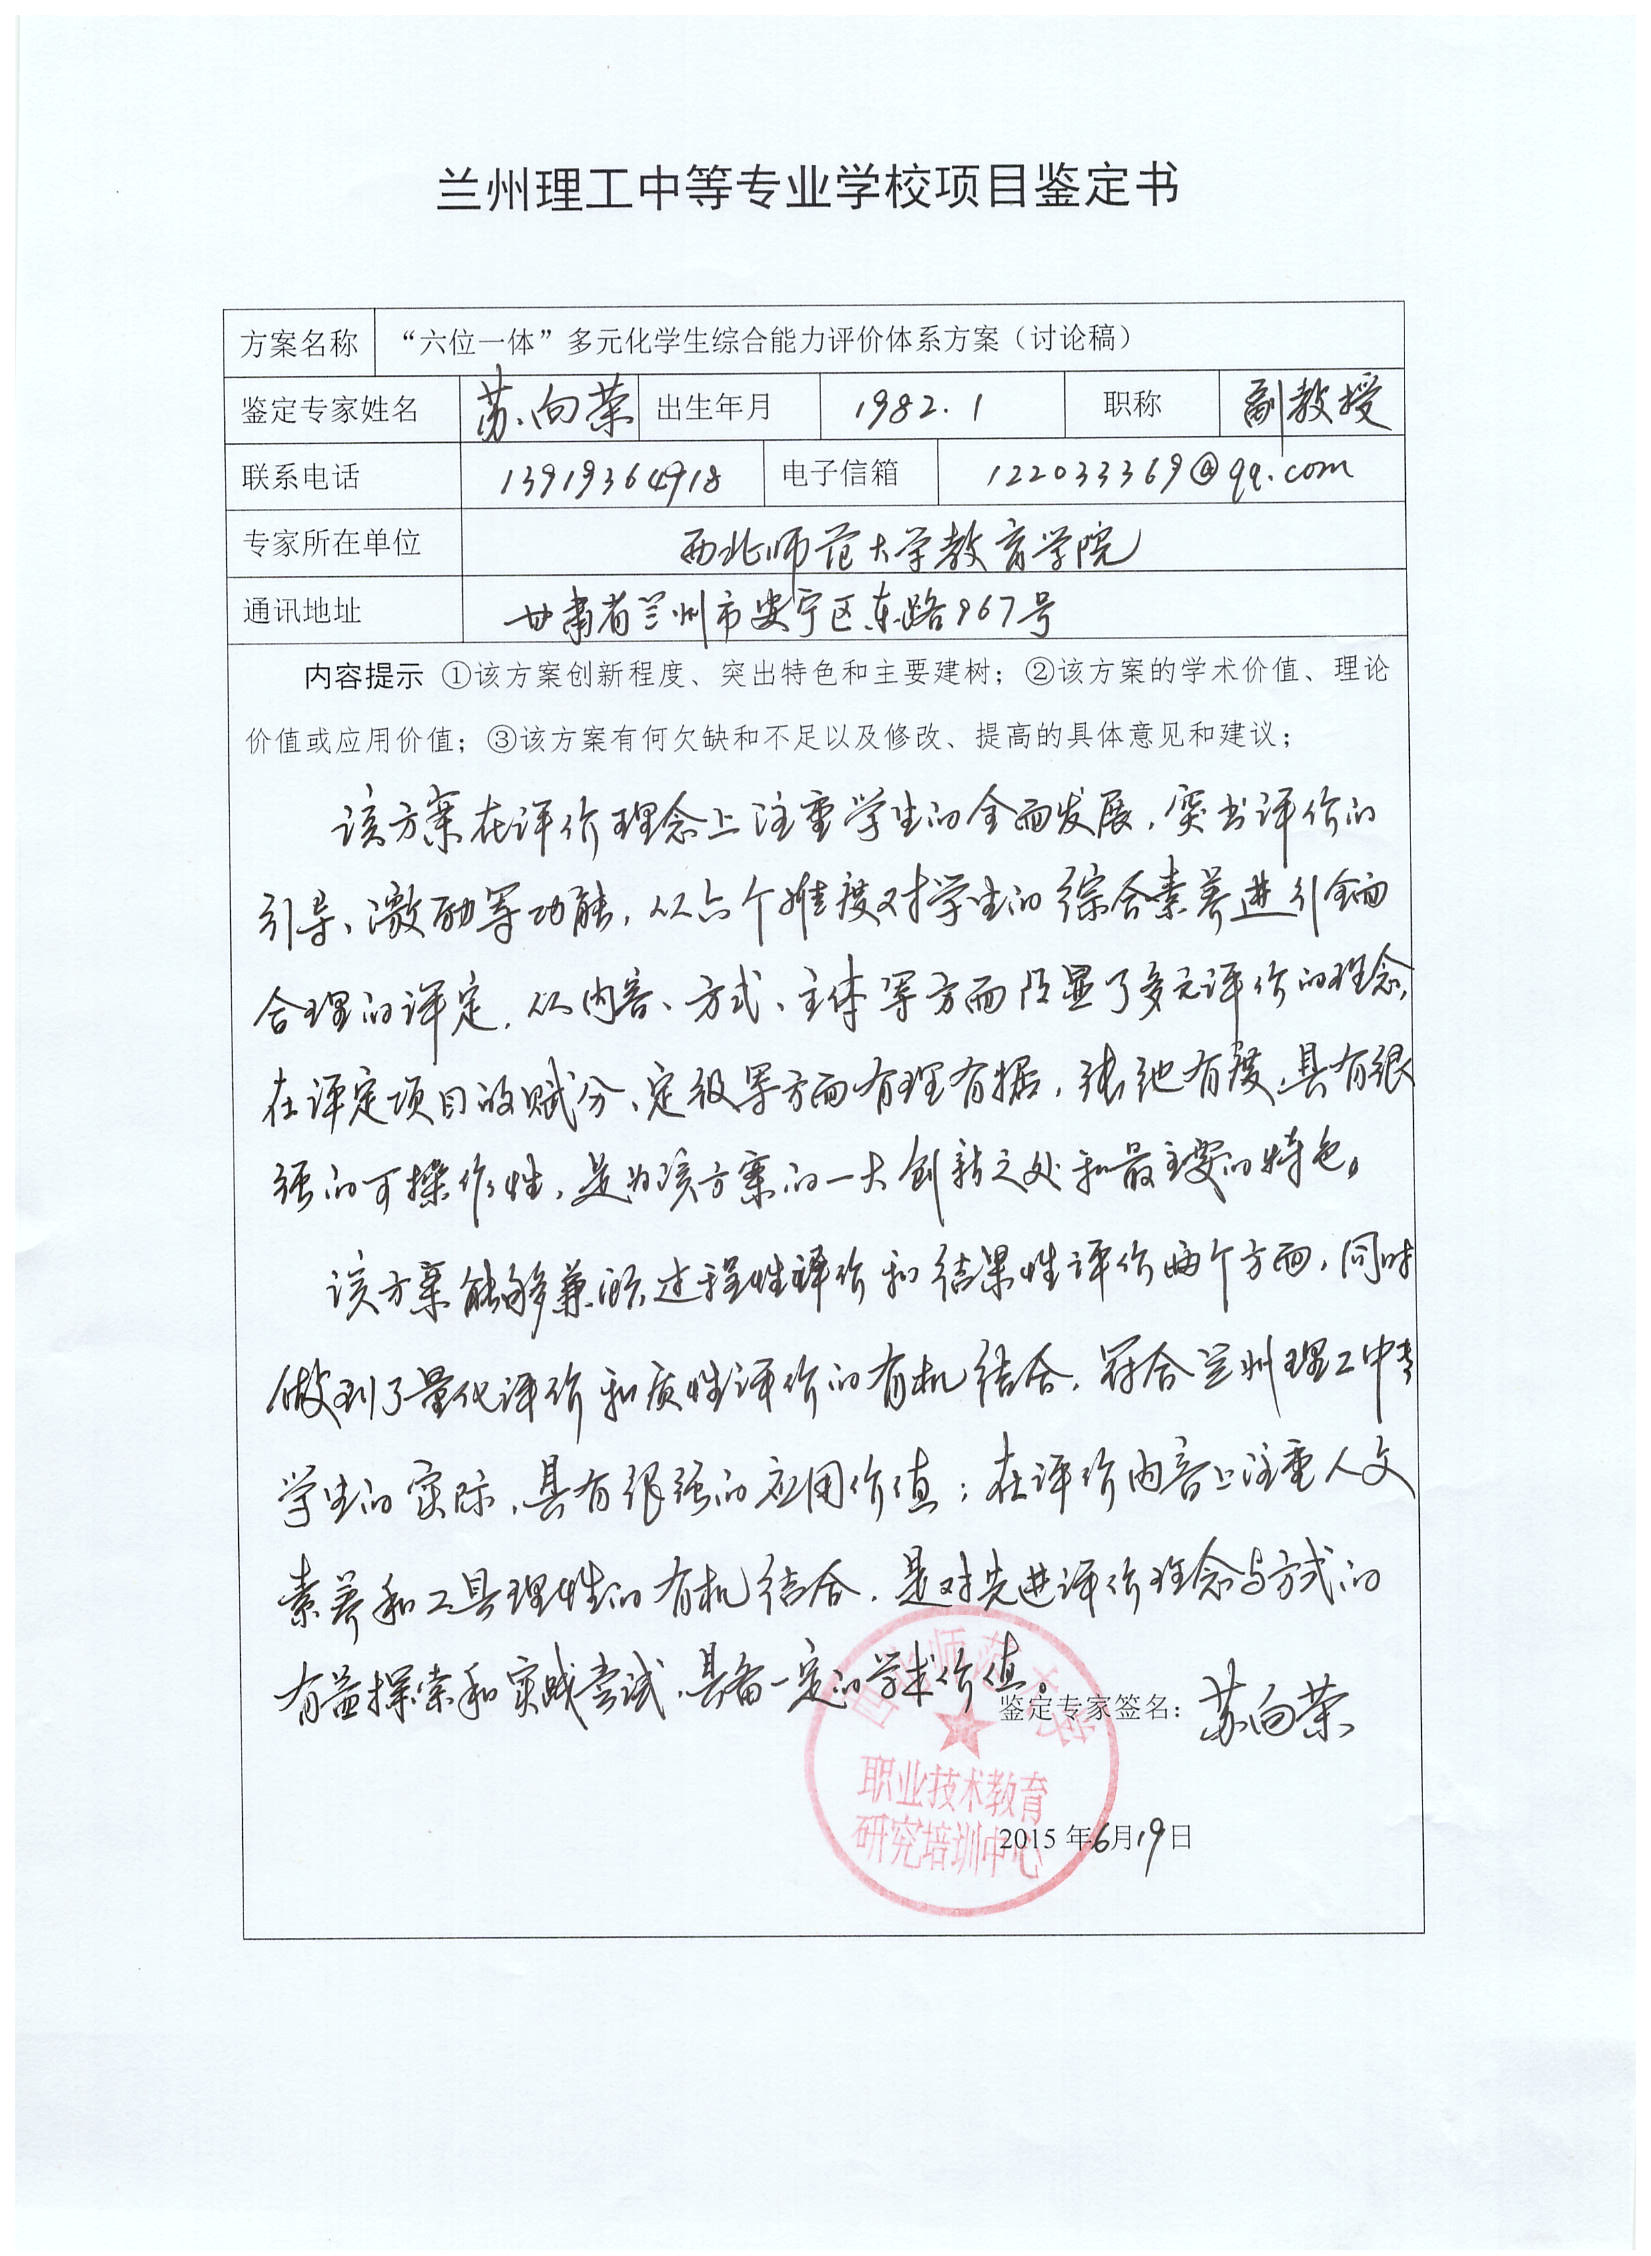 兰州理工中等专业学校项目鉴定书
方案名称 “六位一体”多元化学生综合能力评价体系方案（讨论稿）
鉴定专家姓名 苏向荣 出生年月 1982.1 职称 副教授
联系电话 13919364918 电子信箱 122033369@qq.com
专家所在单位 西北师范大学教育学院
通讯地址 甘肃省兰州市安宁区东路967号
内容提示 ①该方案创新程度、突出特色和主要建树；②该方案的学术价值、理论
价值或应用价值；③该方案有何欠缺和不足以及修改、提高的具体意见和建议；
该方案在评价理念上注重学生的全面发展，突出评价的
引导、激励等功能，从六个维度对学生的综合素养进行全面
合理的评定，从内容、方式、主体等方面凸显了多元评价的理念，
在评定项目的赋分、定级等方面有理有据，张弛有度，具有很
强的可操作性，是为该方案的一大创新之处和最主要的特色。
该方案能够兼顾过程性评价和结果性评价两个方面，同时
做到了量化评价和质性评价的有机结合，符合兰州理工中专
学生的实际，具有很强的应用价值；在评价内容上注重人文
素养和工具理性的有机结合，是对先进评价理念与方式的
有益探索和实践尝试，具备一定的学术价值。
鉴定专家签名：苏向荣
西北师范大学
职业技术教育
研究培训中心
2015年6月19日